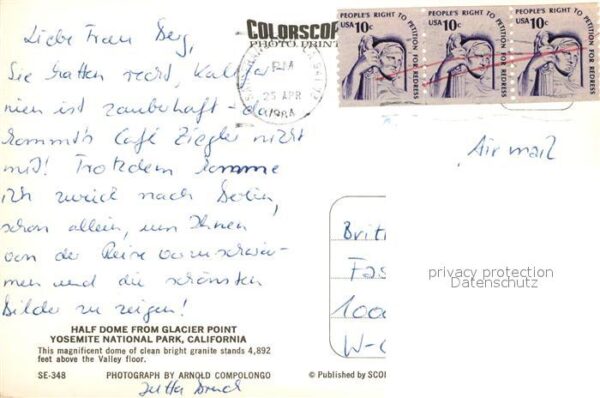 Liebe Frau Berg,
Sie hatten recht, Kalifor
nien ist zauberhaft – da
kommt's Café Ziegler nicht
mit! Trotzdem komme
ich zurück nach Berlin,
schon allein, um Ihnen
von der Reise vorzuschwär-
men und die schönsten
Bilder zu zeigen!
HALF DOME FROM GLACIER POINT
YOSEMITE NATIONAL PARK, CALIFORNIA
This magnificent dome of clean bright granite stands 4,892
feet above the Valley floor.
SE-348 PHOTOGRAPH BY ARNOLD COMPOLONGO © Published by SCO
Jutta
COLORSCO
PHOTO PRINT
PM
25 APR
1984
PEOPLE'S RIGHT TO PETITION FOR REDRESS
USA 10c
PEOPLE'S RIGHT TO PETITION FOR REDRESS
USA 10c
PEOPLE'S RIGHT TO PETITION FOR REDRESS
USA 10c
Air mail
Briti
Fas
1000
W-
privacy protection
Datenschutz